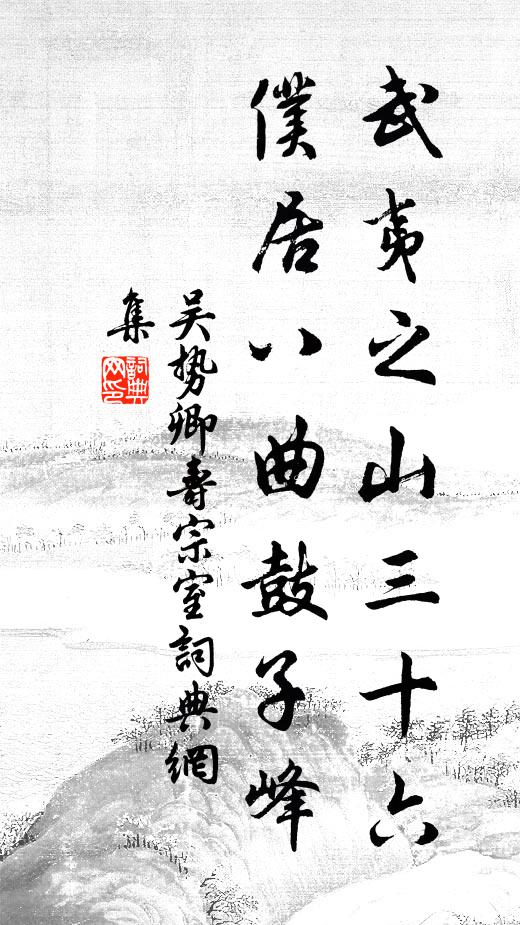 武夷之山三十六
僕居八曲鼓子峰
吴势卿壽宗室詞典網
集
詞典網印